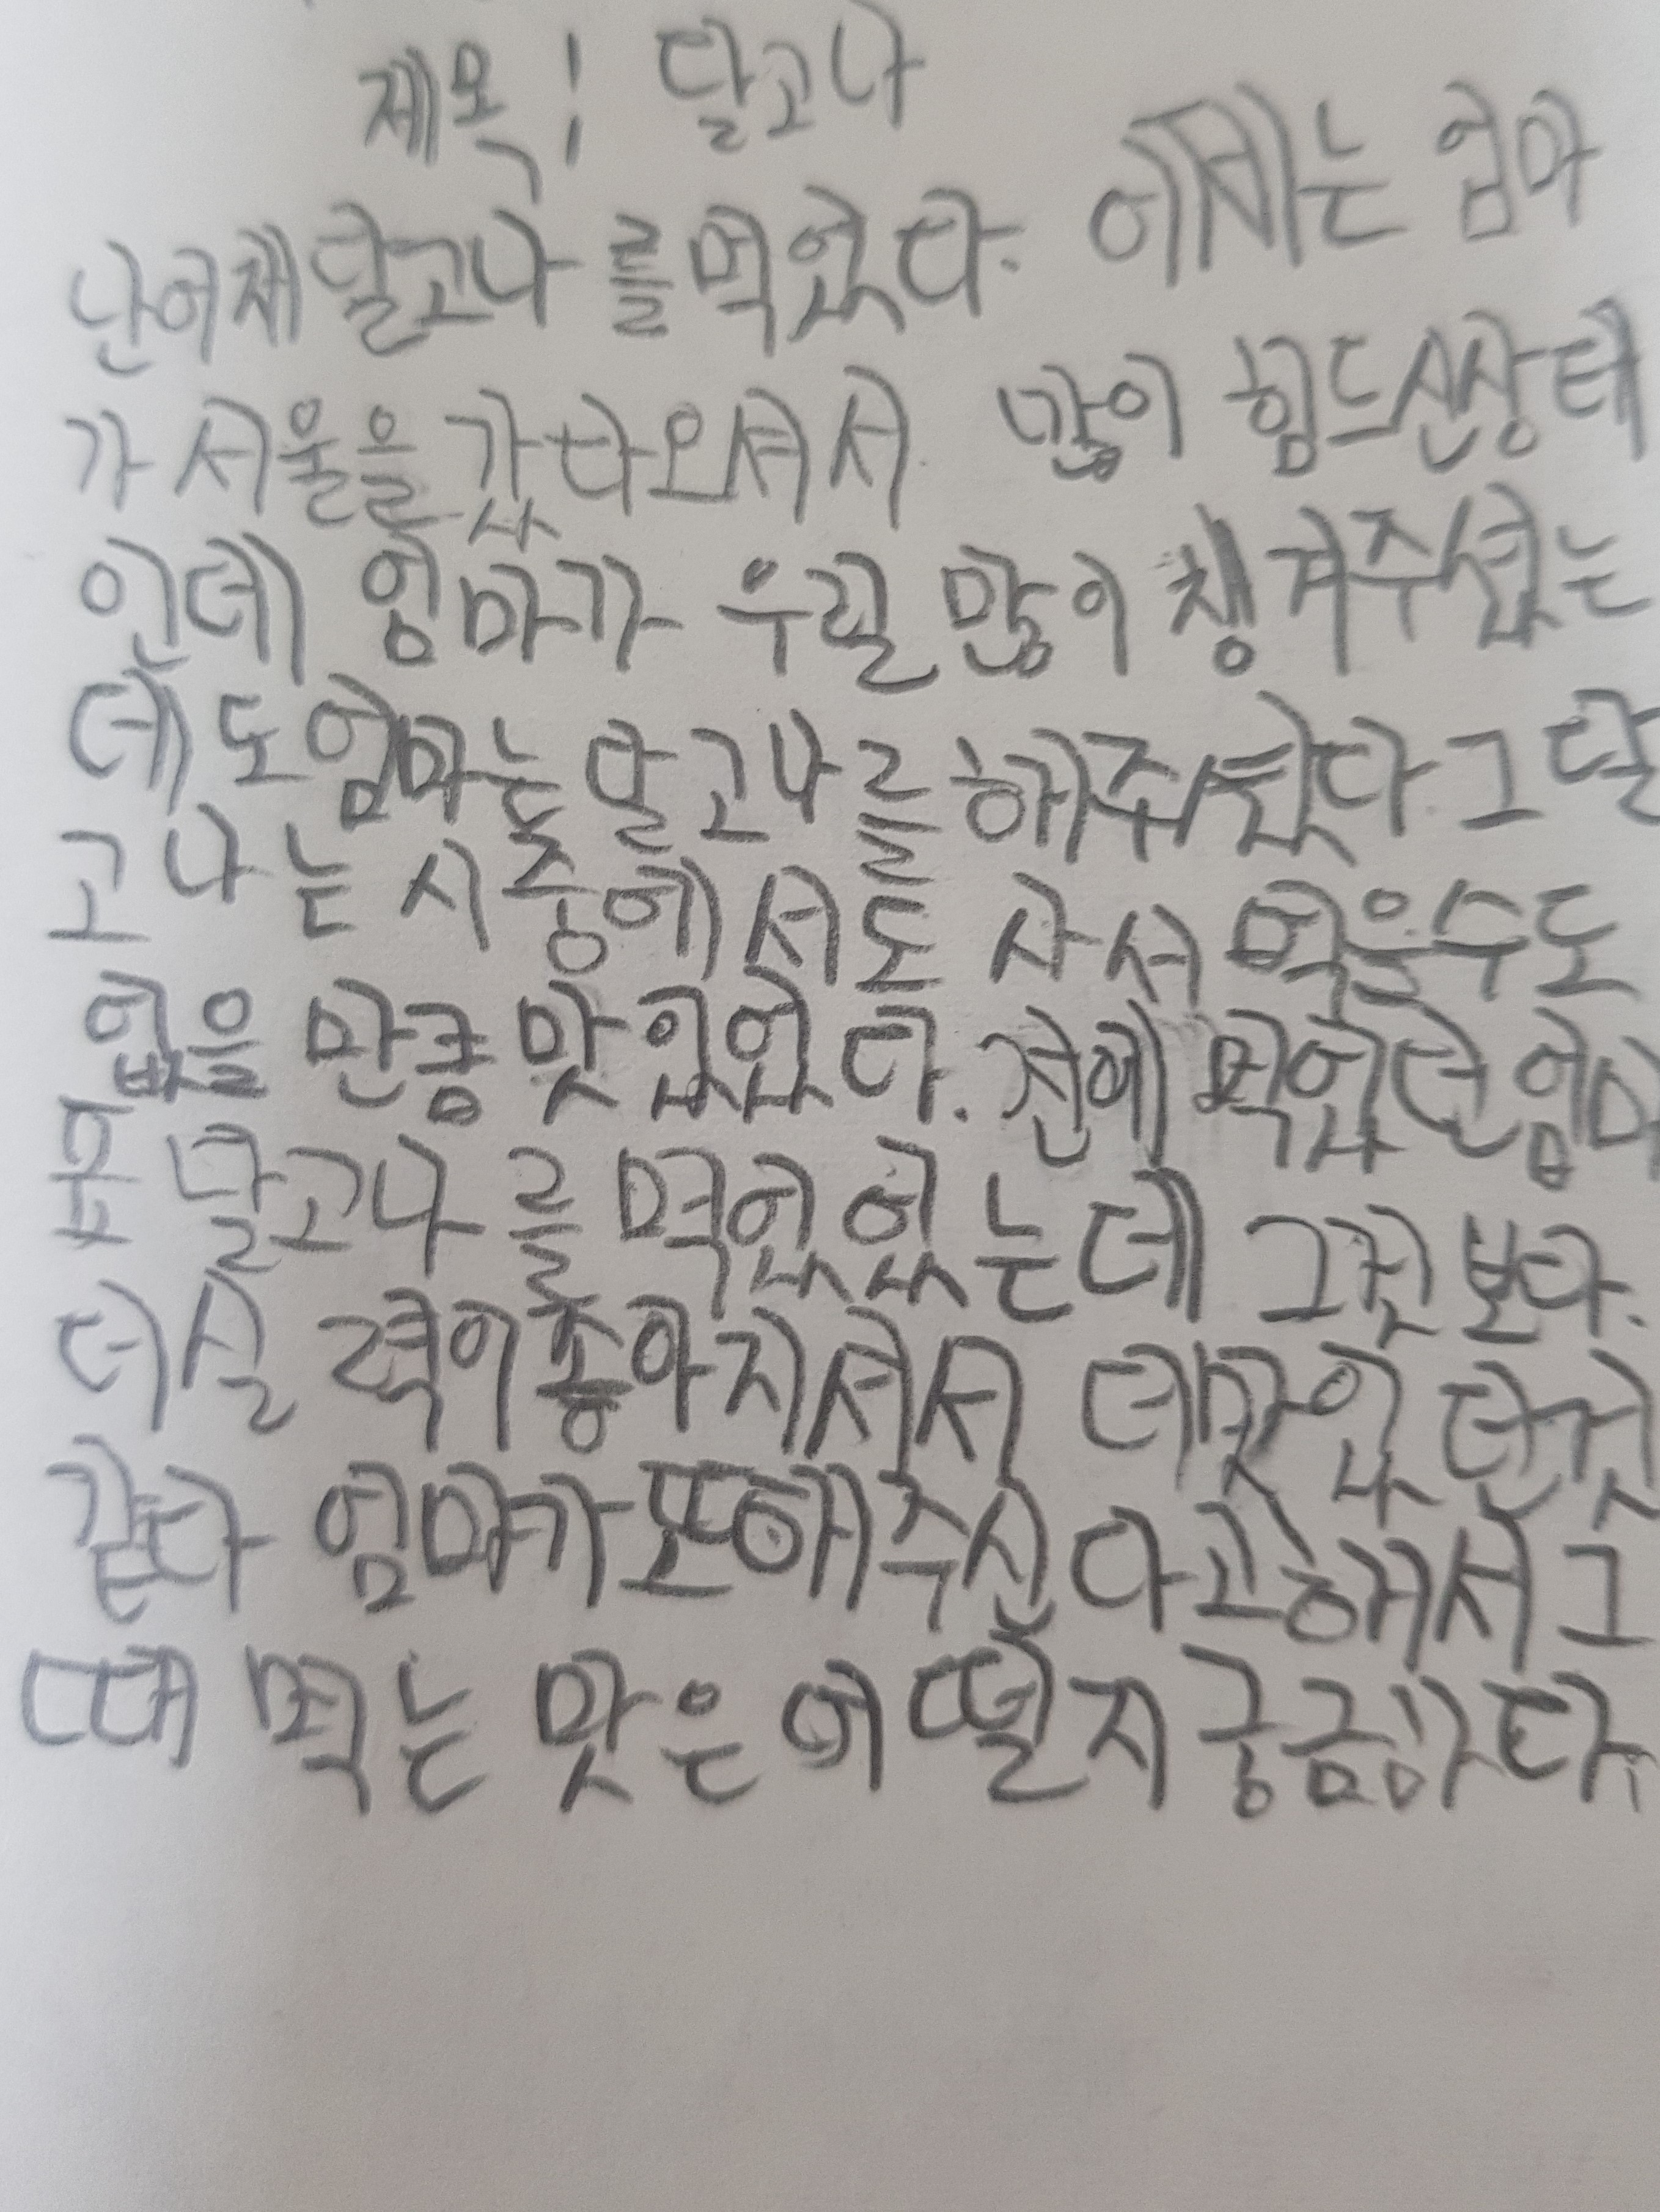 제목! 달고나
난어제달고나 를먹었다. 어제는 엄마
가 서울을 갔다오셔서 많이 힘드신상태
인데 엄마가 우릴 많이 챙겨주셨는
데도엄마는달고나를해주셨다.그달
고나는 시중에서도 사서 먹을수도
없을 만큼 맛있었다. 전에 먹었던 엄마
표 달고나 를 먹었었는데 그것 보다.
더실력이좋아지셔서 더맛있던것
같다 엄마가또해주신다고해서 그
때 먹는 맛은 어떨지궁금하다.